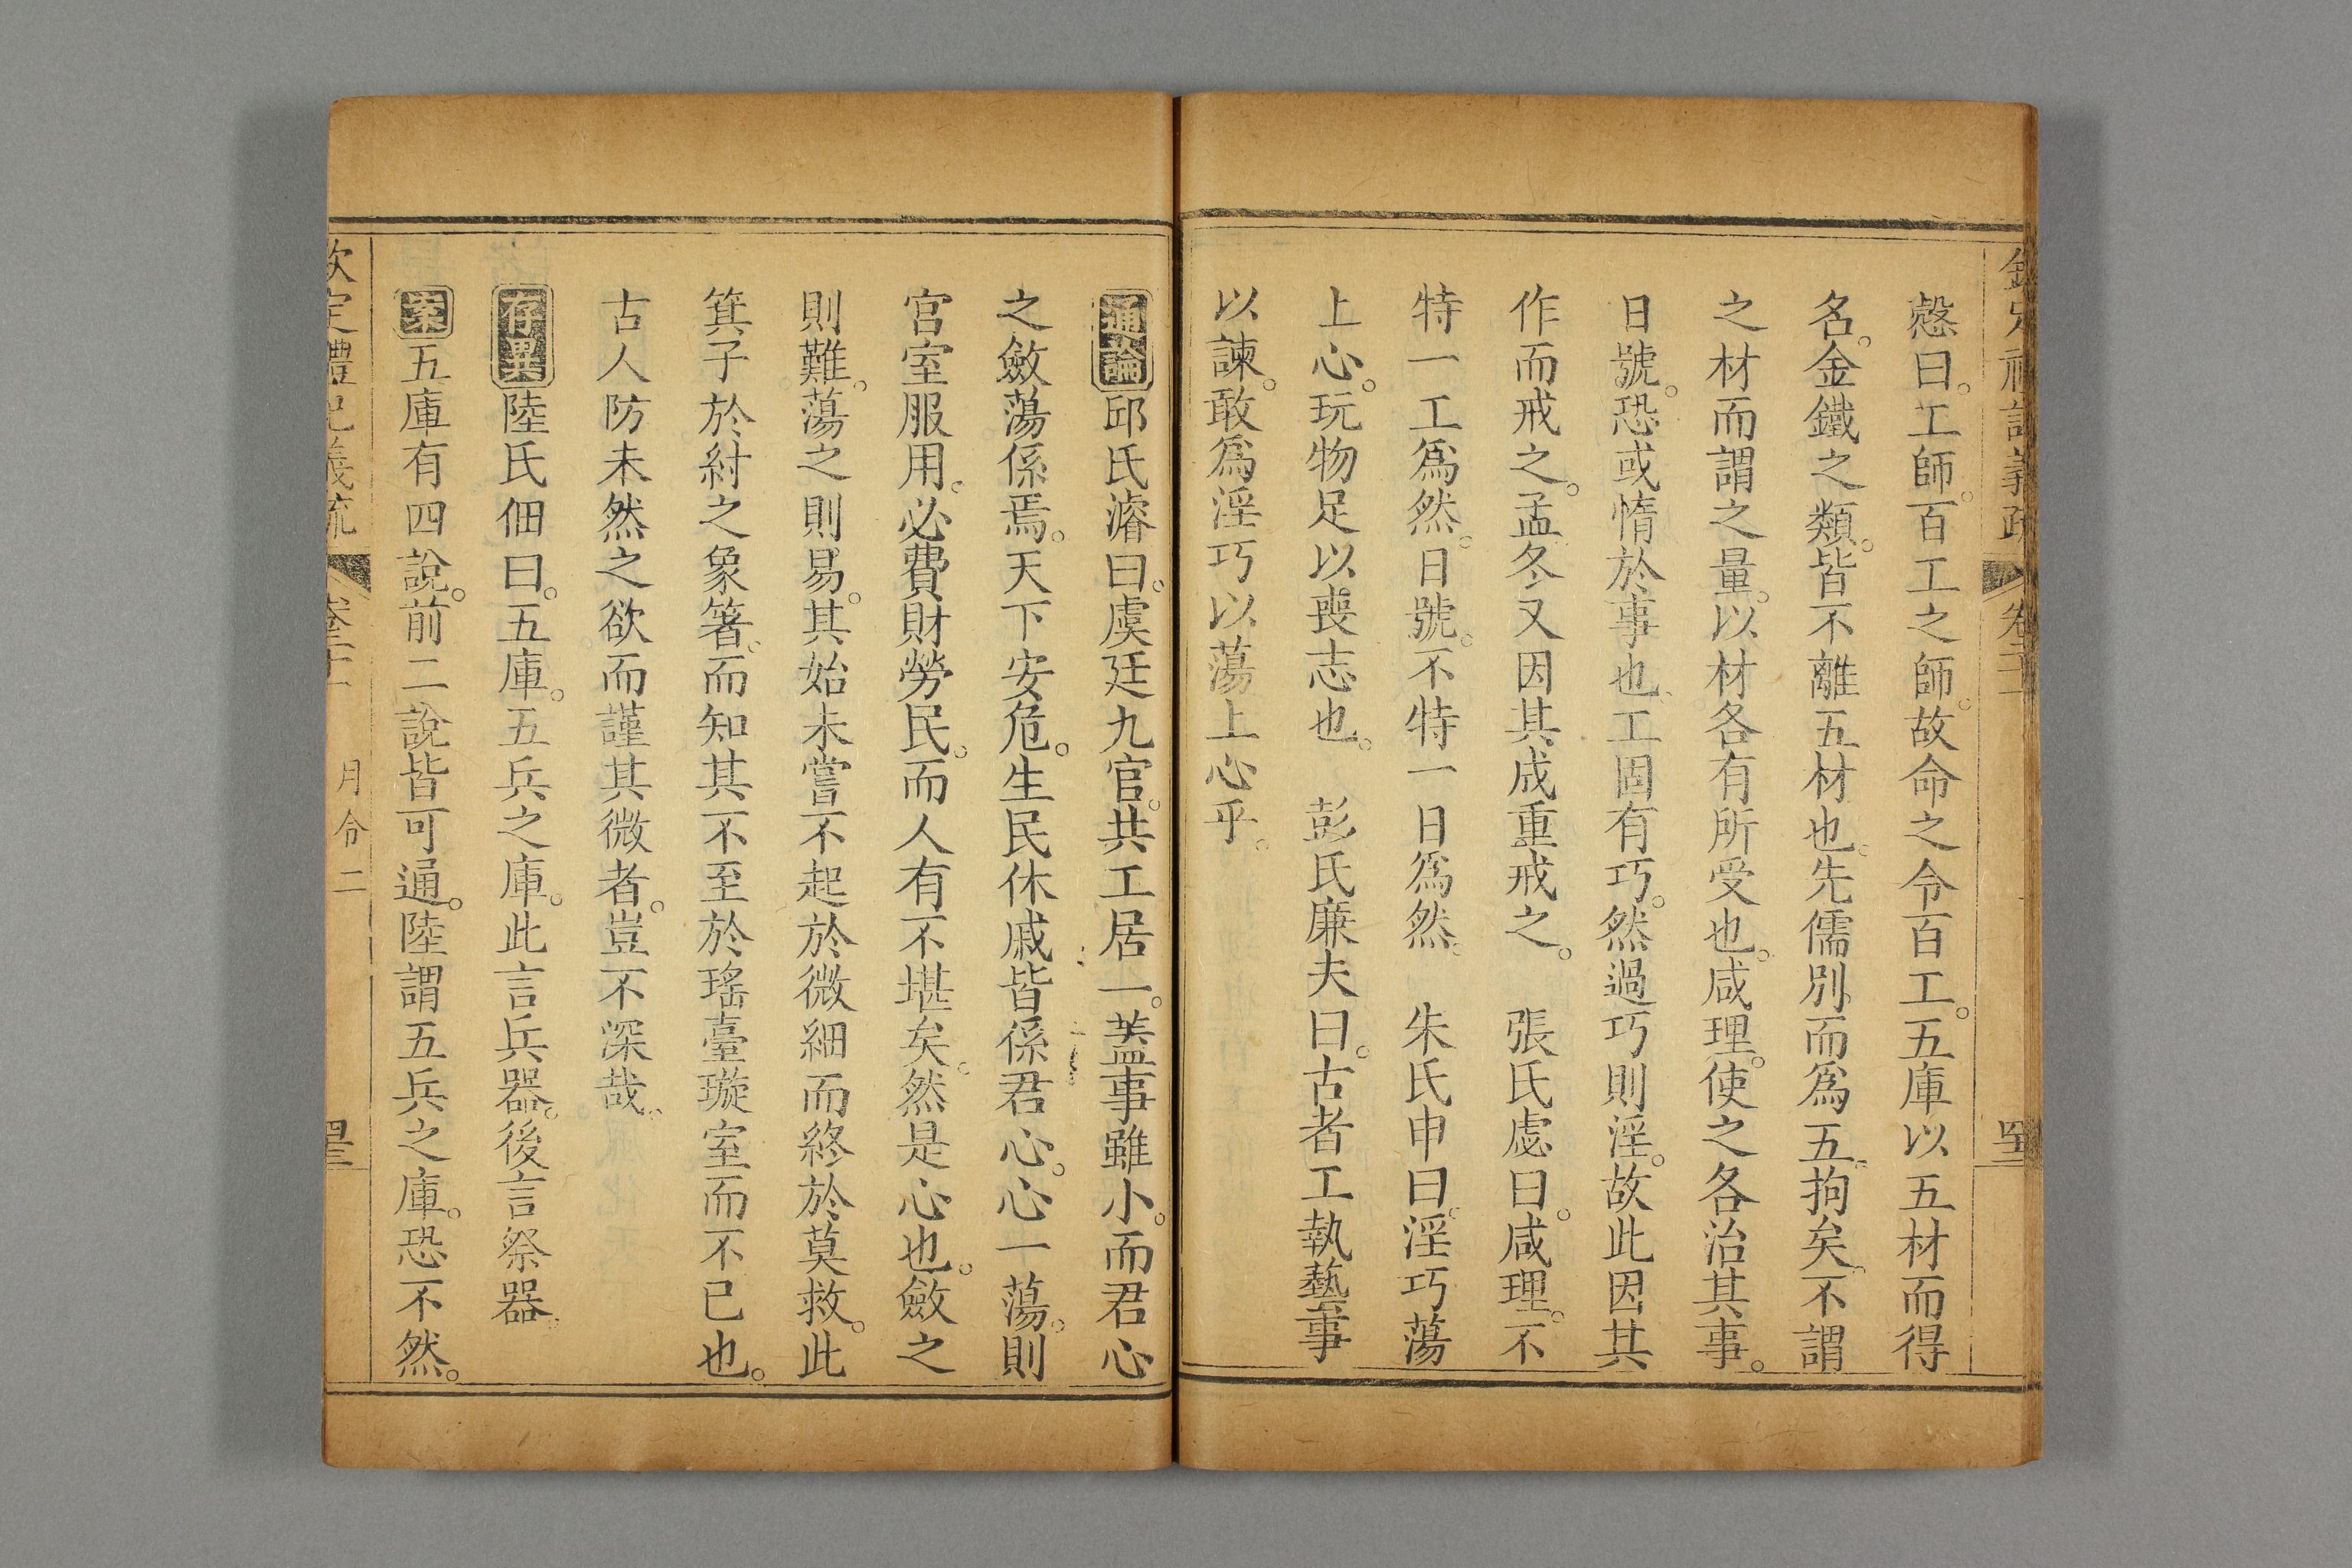 慤曰。工師。百工之師。故命之令百工。五庫以五材而得
名。金鐵之類。皆不離五材也。先儒別而爲五。拘矣。不謂
之材而謂之量。以材各有所受也。咸理。使之各治其事。
日號。恐或惰於事也。工固有巧。然過巧則淫。故此因其
作而戒之。孟冬又因其成重戒之。 張氏虙曰。咸理。不
特一工爲然。日號。不特一日爲然。 朱氏申曰。淫巧蕩
上心。玩物足以喪志也。 彭氏廉夫曰。古者工執藝事
以諫。敢爲淫巧以蕩上心乎。
通論邱氏濬曰。虞廷九官。共工居一。葢事雖小。而君心
之斂蕩係焉。天下安危。生民休戚皆係君心。心一蕩。則
宮室服用。必費財勞民。而人有不堪矣。然是心也。斂之
則難。蕩之則易。其始未嘗不起於微細而終於莫救。此
箕子於紂之象箸。而知其不至於瑤臺璇室而不已也。
古人防未然之欲而謹其微者。豈不深哉。
存異陸氏佃曰。五庫。五兵之庫。此言兵器。後言祭器。
案五庫有四說。前二說皆可通。陸謂五兵之庫。恐不然。
欽定禮記義疏 卷二十一 月令二